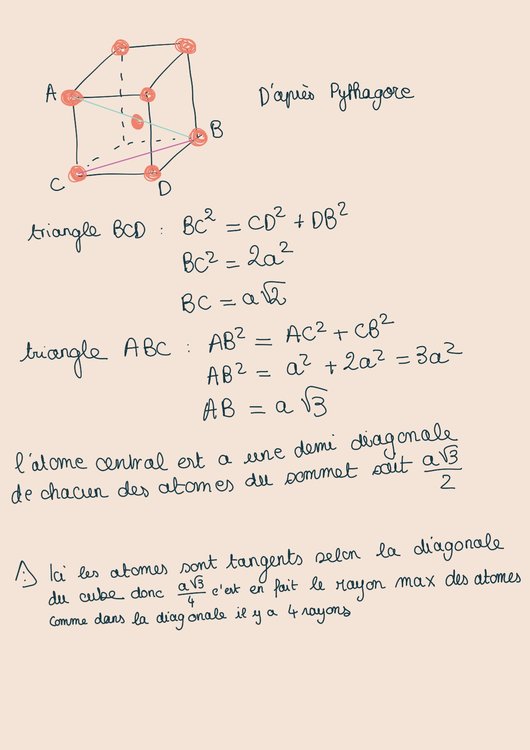 A
D'après Pythagore
B
C
D
triangle BCD : BC² = CD² + DB²
BC² = 2a²
BC = a√2
triangle ABC : AB² = AC² + CB²
AB² = a² + 2a² = 3a²
AB = a√3
l'atome central est a une demi diagonale
de chacun des atomes du sommet soit a√3/2
⚠ Ici les atomes sont tangents selon la diagonale
du cube donc a√3/4 c'est en fait le rayon max des atomes
comme dans la diagonale il y a 4 rayons